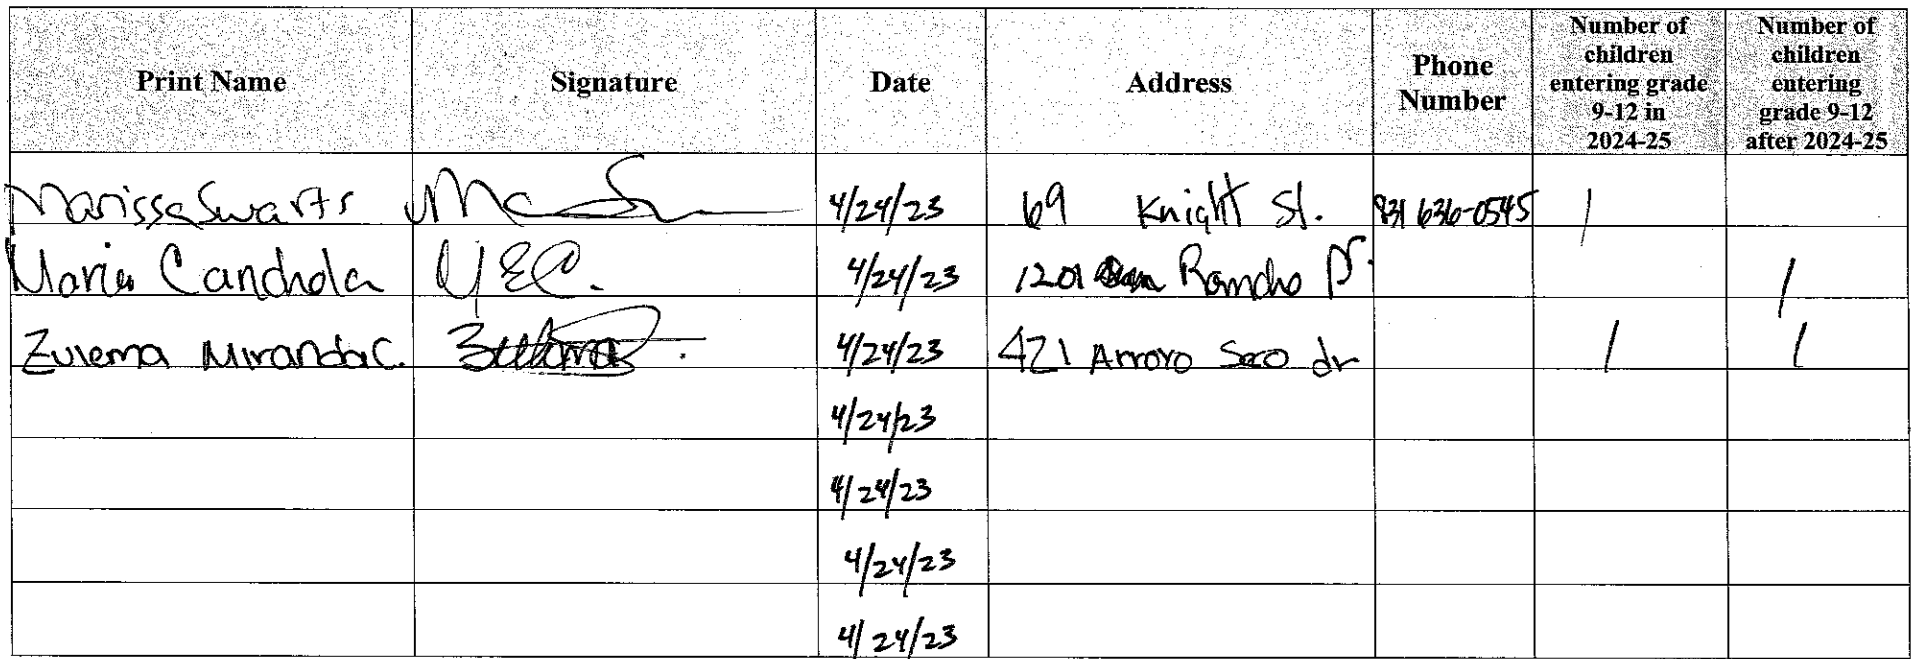 Print Name Signature Date Address Phone Number Number of children entering grade 9-12 in 2024-25 Number of children entering grade 9-12 after 2024-25
Marissa Swarts 4/24/23 69 Knight St. 831 636-0545 1
Maria Candhola 4/24/23 1201 Rancho Dr. 1
Zulema Miranda C. Zulema 4/24/23 421 Arroyo Seco dr 1 1
4/24/23
4/24/23
4/24/23
4/24/23